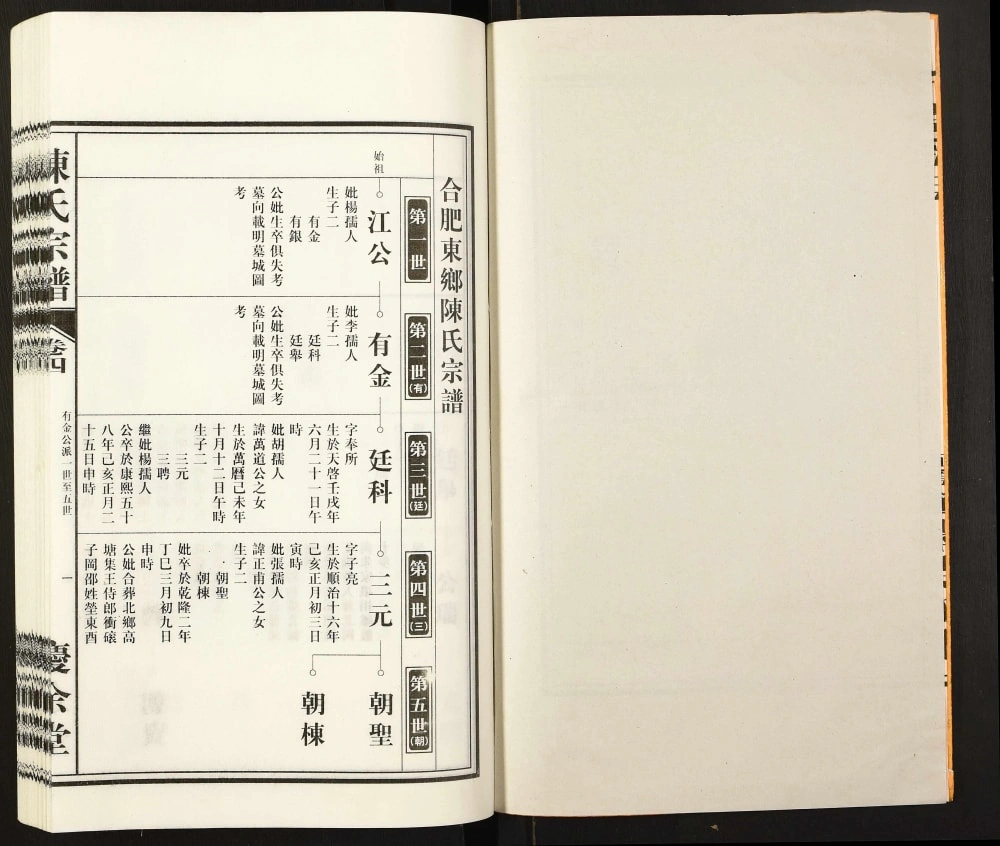 合肥東鄉陳氏宗譜
第一世
第二世(有)
第三世(廷)
第四世(三)
第五世(朝)
始祖
江公
妣楊孺人
生子二
有金
有銀
公妣生卒俱失考
墓向載明墓城圖
考
有金
妣李孺人
生子二
廷科
廷舉
公妣生卒俱失考
墓向載明墓城圖
考
廷科
字奉所
生於天啓壬戌年
六月二十一日午
時
妣胡孺人
諱萬道公之女
生於萬曆己未年
十月十二日午時
生子二
三元
三聘
繼妣楊孺人
公卒於康熙五十
八年己亥正月二
十五日申時
三元
字子亮
生於順治十六年
己亥正月初三日
寅時
妣張孺人
諱正甫公之女
生子二
朝聖
朝棟
妣卒於乾隆二年
丁巳三月初九日
申時
公妣合葬北鄉高
塘集王侍郎衝磙
子岡邵姓塋東酉
朝聖
朝棟
陳氏宗譜
卷四
有金公派一世至五世
一
慶余堂